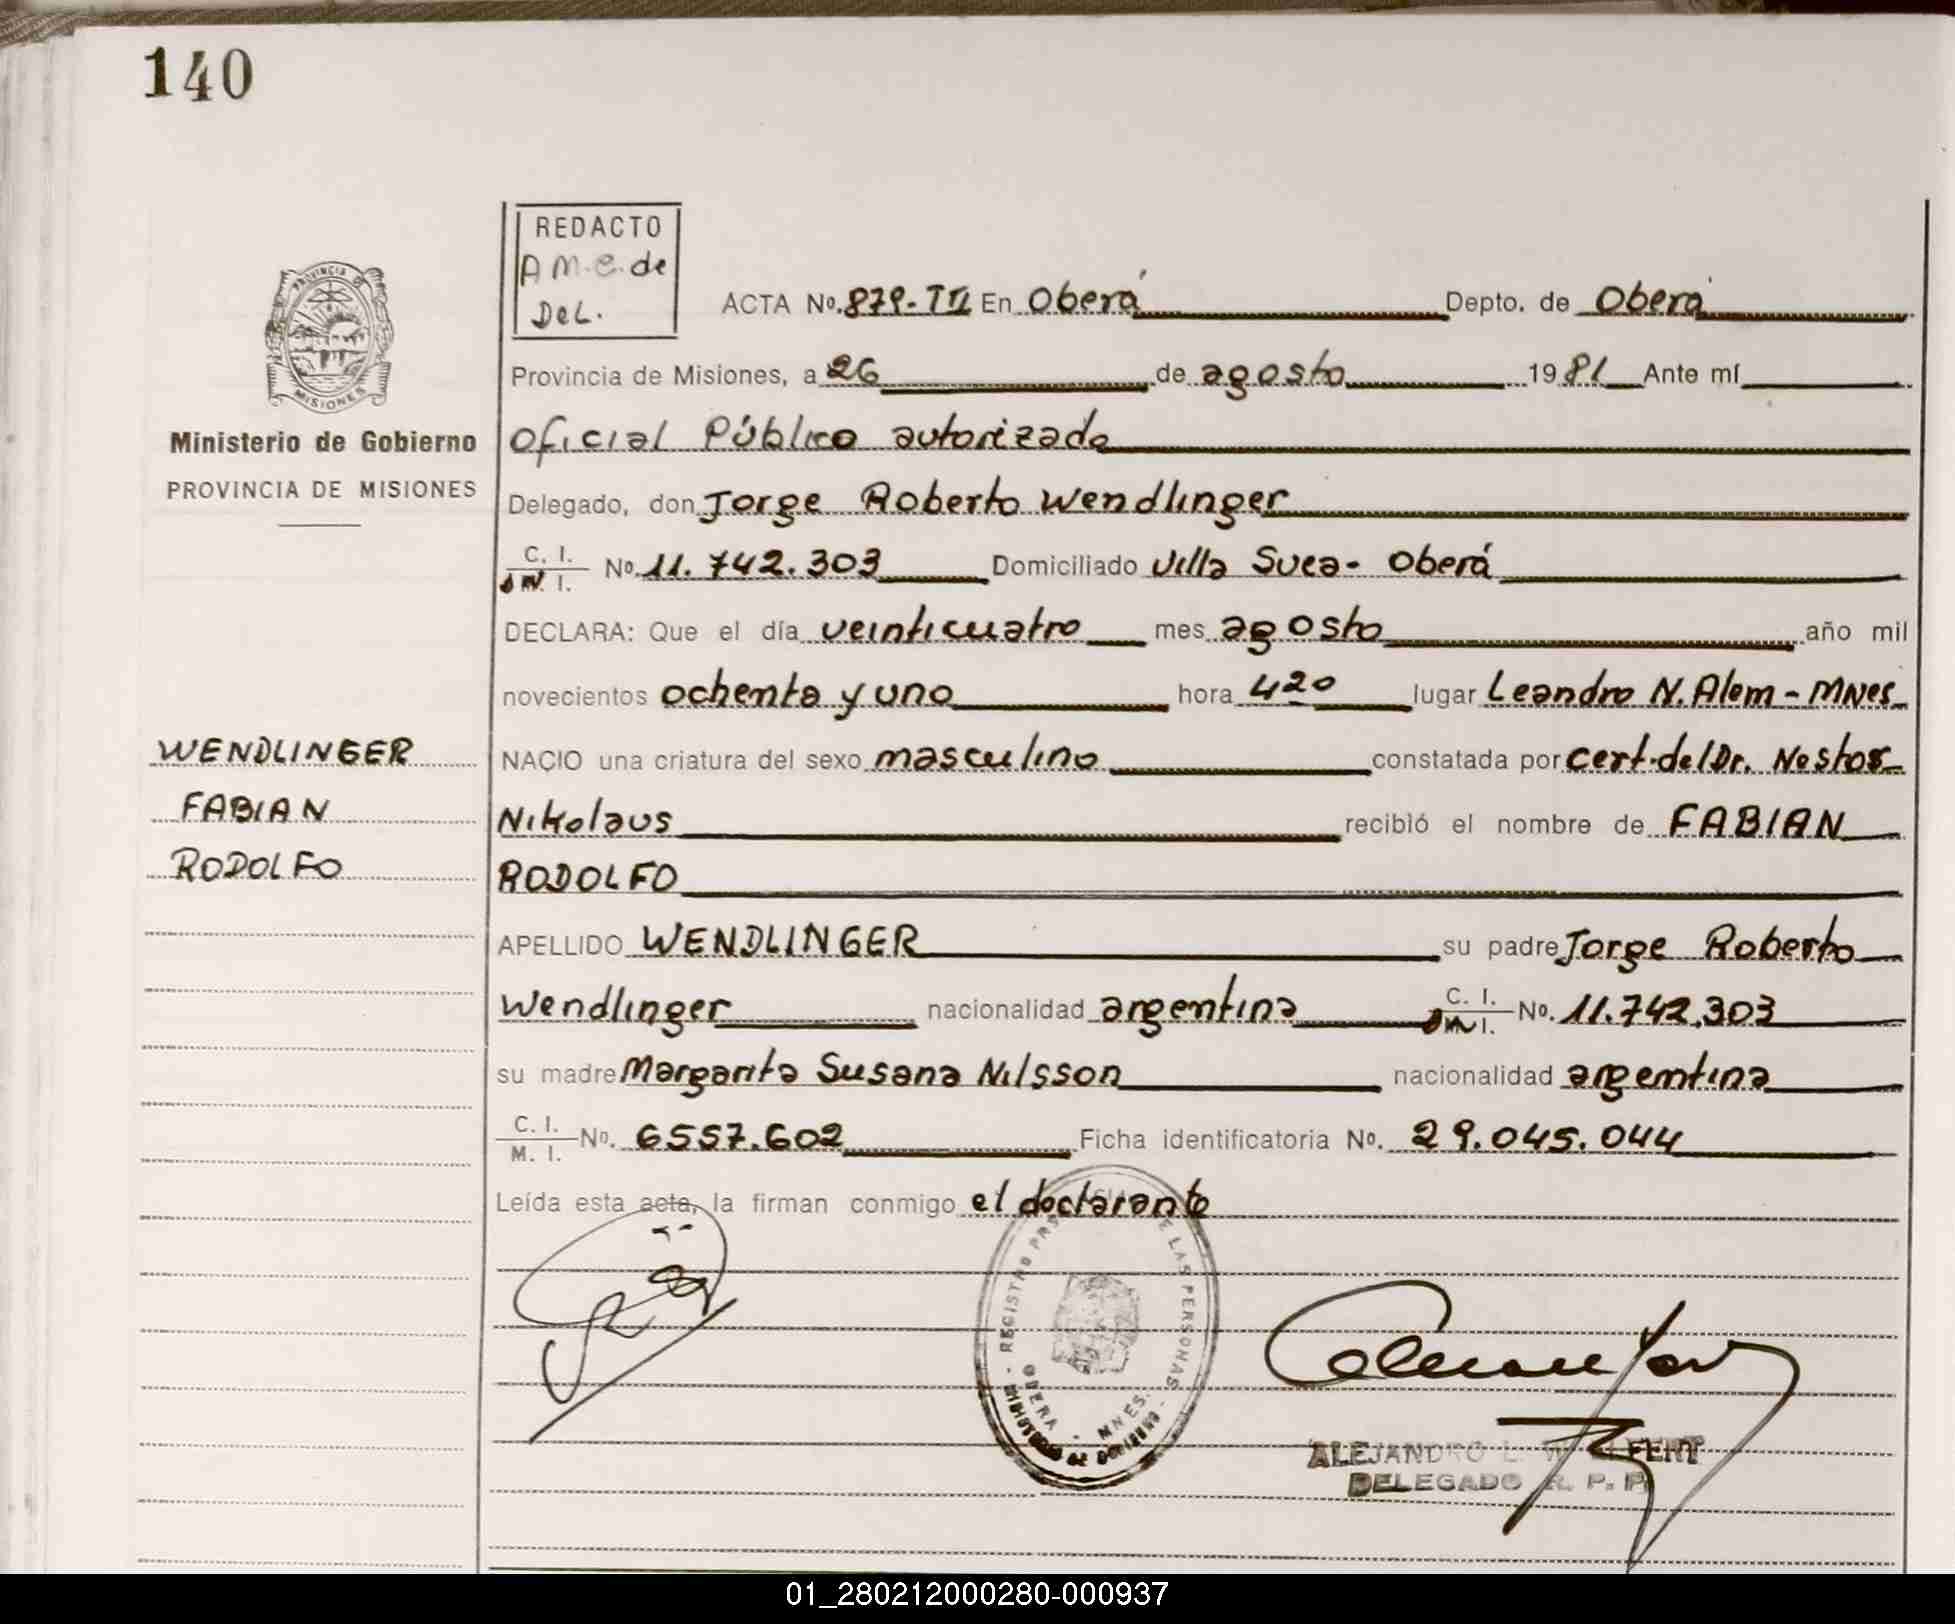 140
REDACTO
A M.C. de
DEL.
ACTA No. 879-TII En Oberá Depto. de Oberá
Provincia de Misiones, a 26 de agosto 1981 Ante mí
Oficial Público autorizado
Delegado, don Jorge Roberto Wendlinger
C. I.
No. 11.742.303 Domiciliado Villa Svea- Oberá
M. I.
DECLARA: Que el día veinticuatro mes agosto año mil
novecientos ochenta y uno hora 4 20 lugar Leandro N. Alem - MNes
NACIO una criatura del sexo masculino constatada por cert. del Dr. Nestor
Nikolaus recibió el nombre de FABIAN
RODOLFO
APELLIDO WENDLINGER su padre Jorge Roberto
Wendlinger nacionalidad argentina C. I. No. 11.742.303
su madre Margarita Susana Nilsson nacionalidad argentina
C. I.
M. I. No. 6557.602 Ficha identificatoria No. 29.045.044
Leída esta acta, la firman conmigo el declarante
PROVINCIA DE MISIONES
Ministerio de Gobierno
PROVINCIA DE MISIONES
WENDLINGER
FABIAN
RODOLFO
REGISTRO DE LAS PERSONAS
OBERA - MNES.
MINISTERIO DE GOBIERNO
ALEJANDRO L.
DELEGADO R. P. P.
01_280212000280-000937